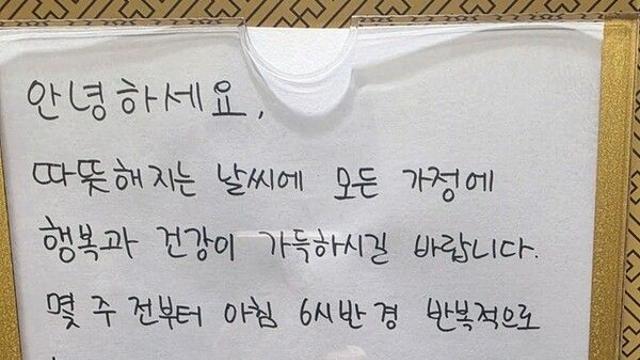 안녕하세요,
따뜻해지는 날씨에 모든 가정에
행복과 건강이 가득하시길 바랍니다.
몇 주 전부터 아침 6시반경 반복적으로